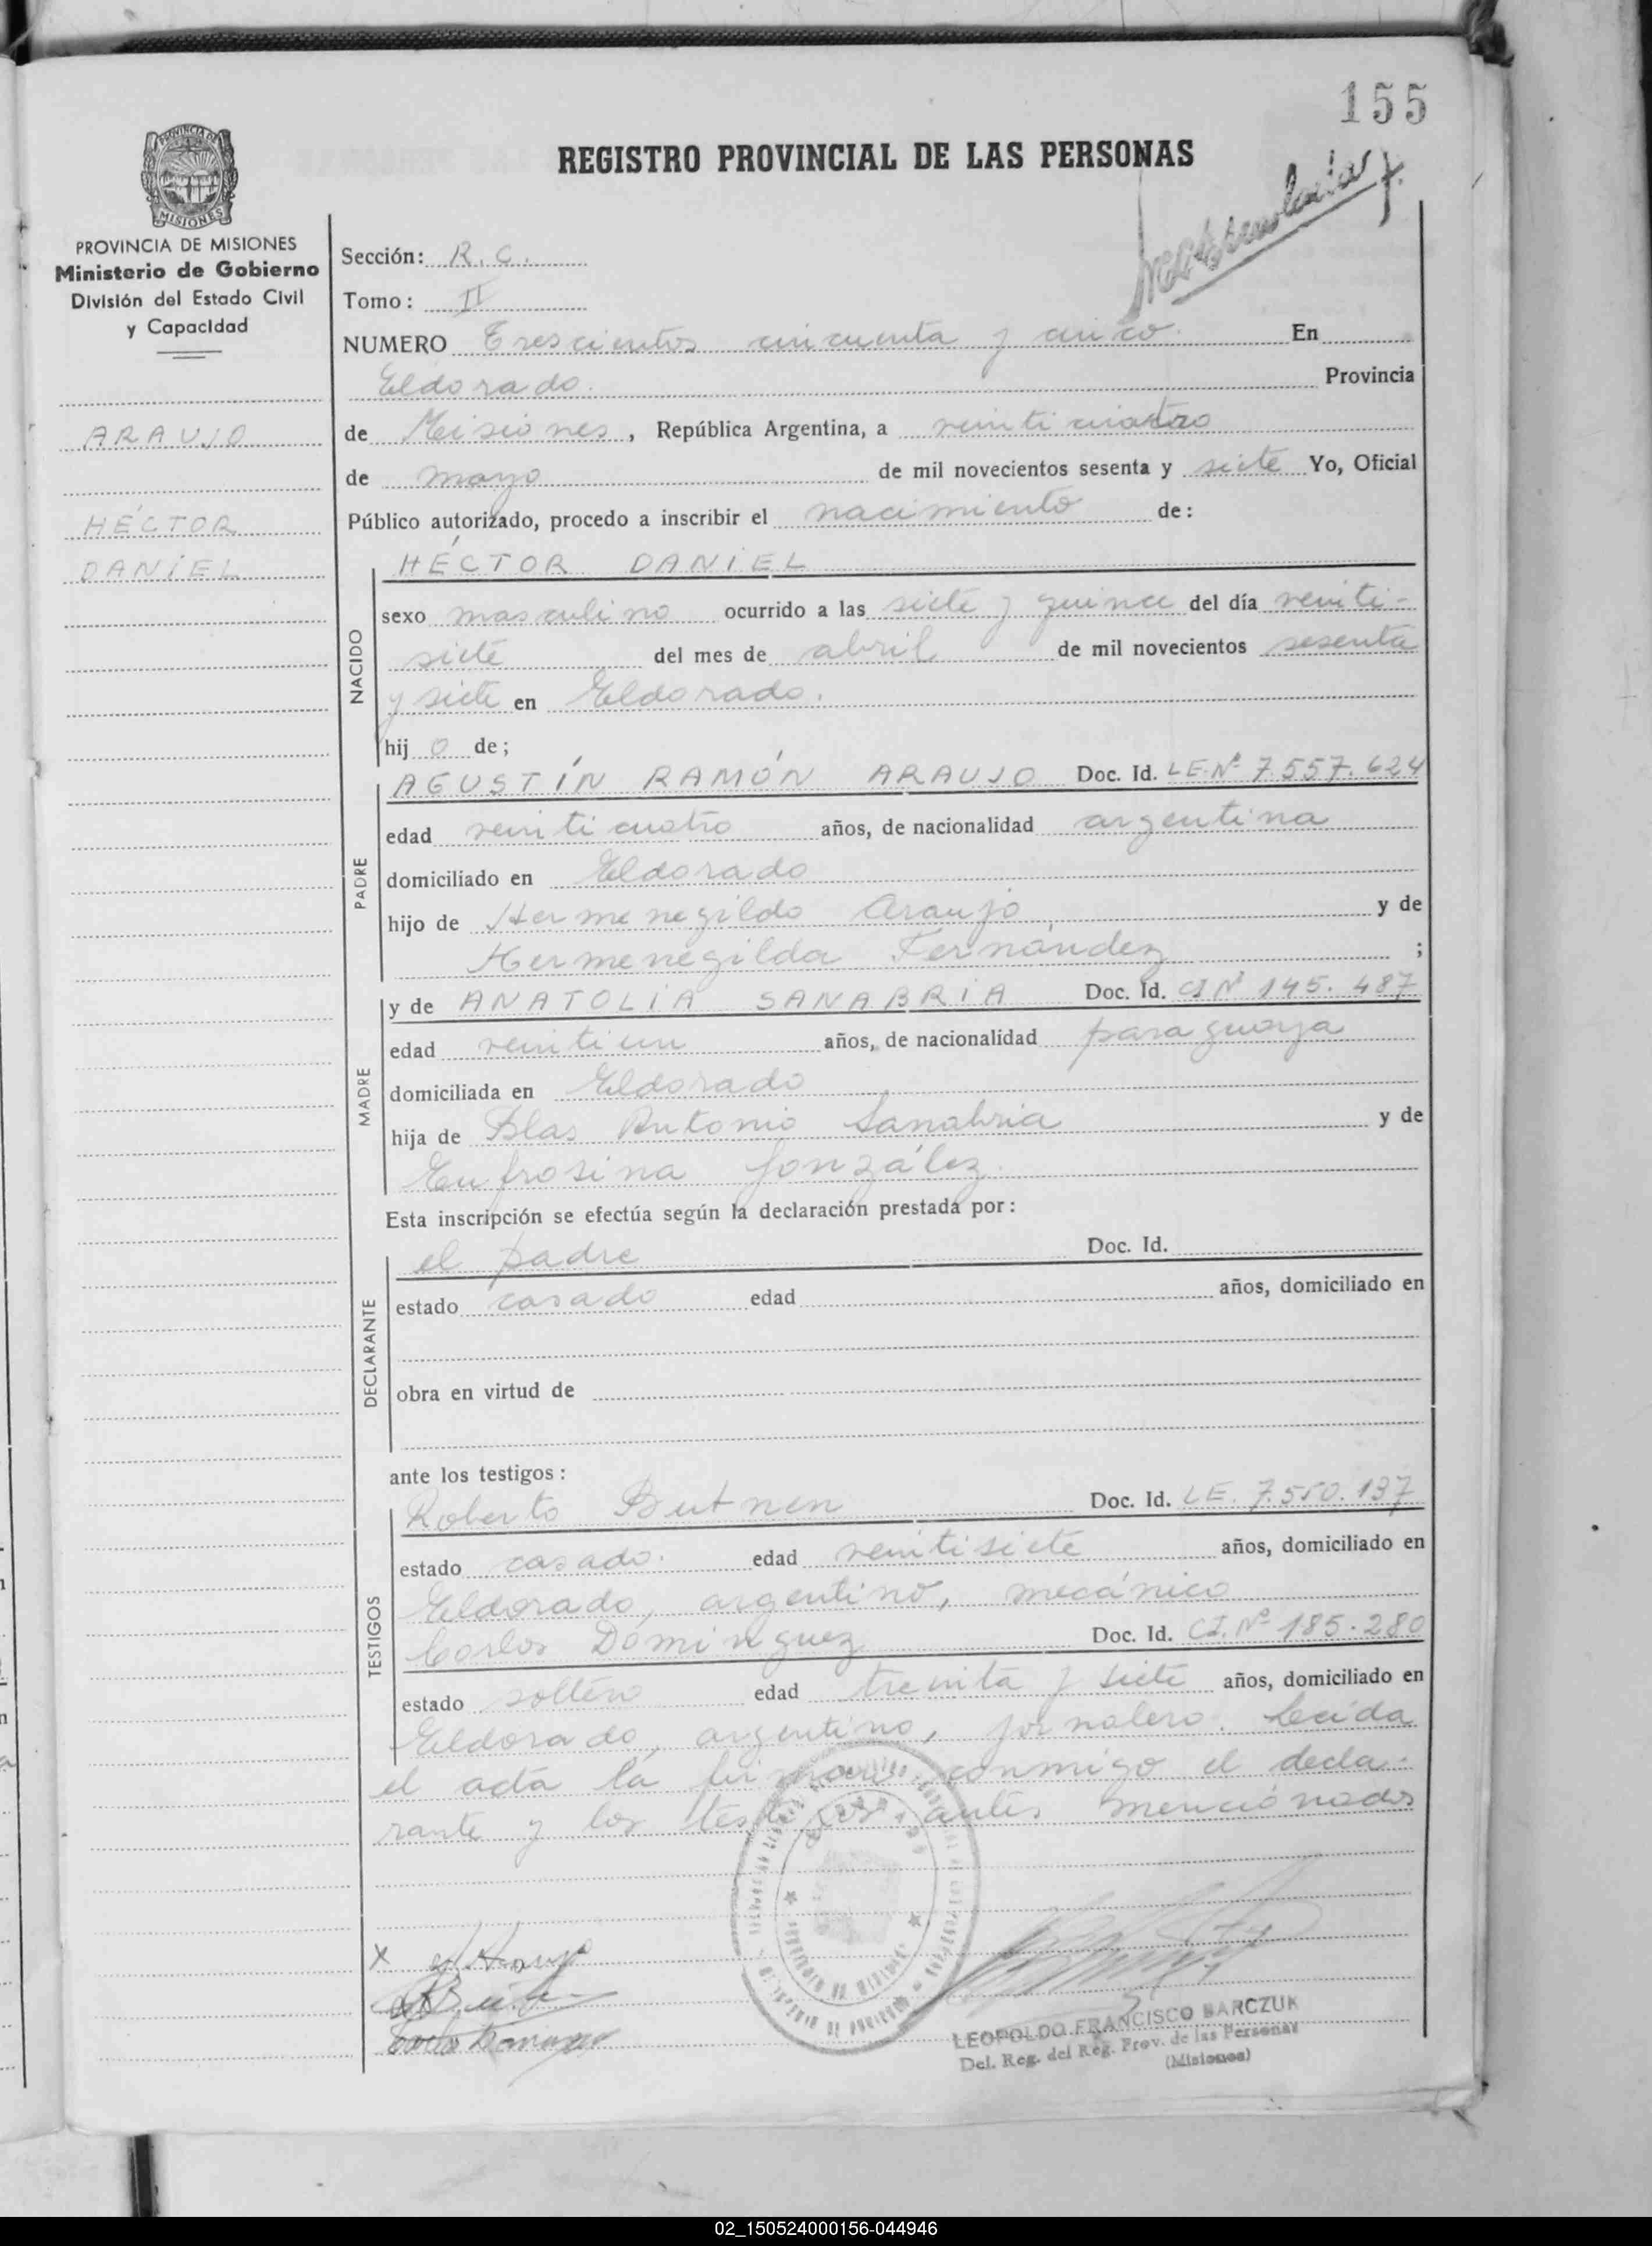 155
REGISTRO PROVINCIAL DE LAS PERSONAS
PROVINCIA DE MISIONES
PROVINCIA DE MISIONES
Ministerio de Gobierno
División del Estado Civil
y Capacidad
ARAUJO
HÉCTOR
DANIEL
Sección: R. C.
Tomo: II
NUMERO Trescientos cincuenta y cinco. En
Eldorado. Provincia
de Misiones, República Argentina, a veinticuatro
de mayo de mil novecientos sesenta y siete Yo, Oficial
Público autorizado, procedo a inscribir el nacimiento de:
NACIDO
HÉCTOR DANIEL
sexo masculino ocurrido a las siete y quince del día veinti-
siete del mes de abril de mil novecientos sesenta
y siete en Eldorado.
hijo de;
PADRE
AGUSTÍN RAMÓN ARAUJO Doc. Id. L.E. Nº 7.557.624
edad veinticuatro años, de nacionalidad argentina
domiciliado en Eldorado
hijo de Hermenegildo Araujo y de
Hermenegilda Fernández ;
MADRE
y de ANATOLIA SANABRIA Doc. Id. CI Nº 145.487
edad veintiun años, de nacionalidad paraguaya
domiciliada en Eldorado
hija de Blas Antonio Sanabria y de
Eufrosina González.
Esta inscripción se efectúa según la declaración prestada por:
DECLARANTE
el padre Doc. Id.
estado casado edad años, domiciliado en
obra en virtud de
ante los testigos:
TESTIGOS
Roberto Butnen Doc. Id. L.E. 7.550.137
estado casado. edad veintisiete años, domiciliado en
Eldorado, argentino, mecánico
Carlos Dominguez Doc. Id. CI. Nº 185.280
estado soltero edad treinta y siete años, domiciliado en
Eldorado, argentino, jornalero. Leída
el acta la firman conmigo el decla-
rante y los testigos antes mencionados
X
LEOPOLDO FRANCISCO BARCZUK
Del. Reg. del Reg. Prov. de las Personas
(Misiones)
02_150524000156-044946